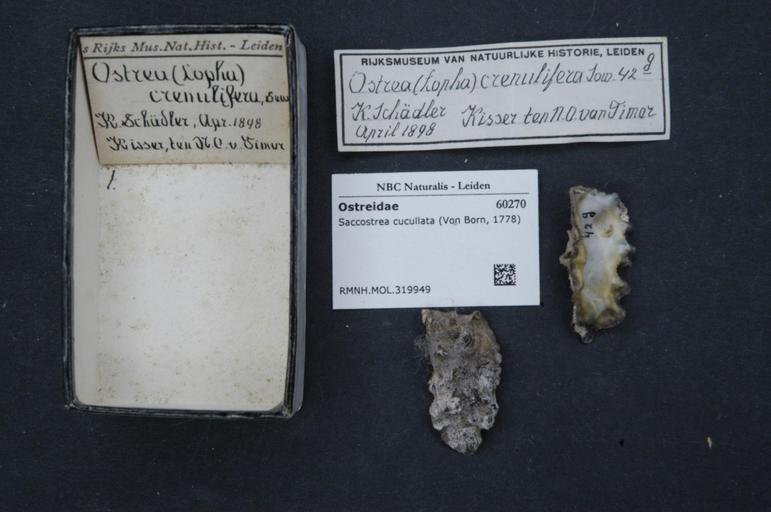 s Rijks Mus. Nat. Hist. - Leiden
Ostrea (Lopha)
crenulifera, Sow
K. Schädler, Apr. 1898
Kisser, ten N.O. v. Timor
1.
RIJKSMUSEUM VAN NATUURLIJKE HISTORIE, LEIDEN
Ostrea (Lopha) crenulifera Sow. 42 g
K. Schädler Kisser ten N.O. van Timor
April 1898
NBC Naturalis - Leiden
Ostreidae 60270
Saccostrea cucullata (Von Born, 1778)
RMNH.MOL.319949
42 g